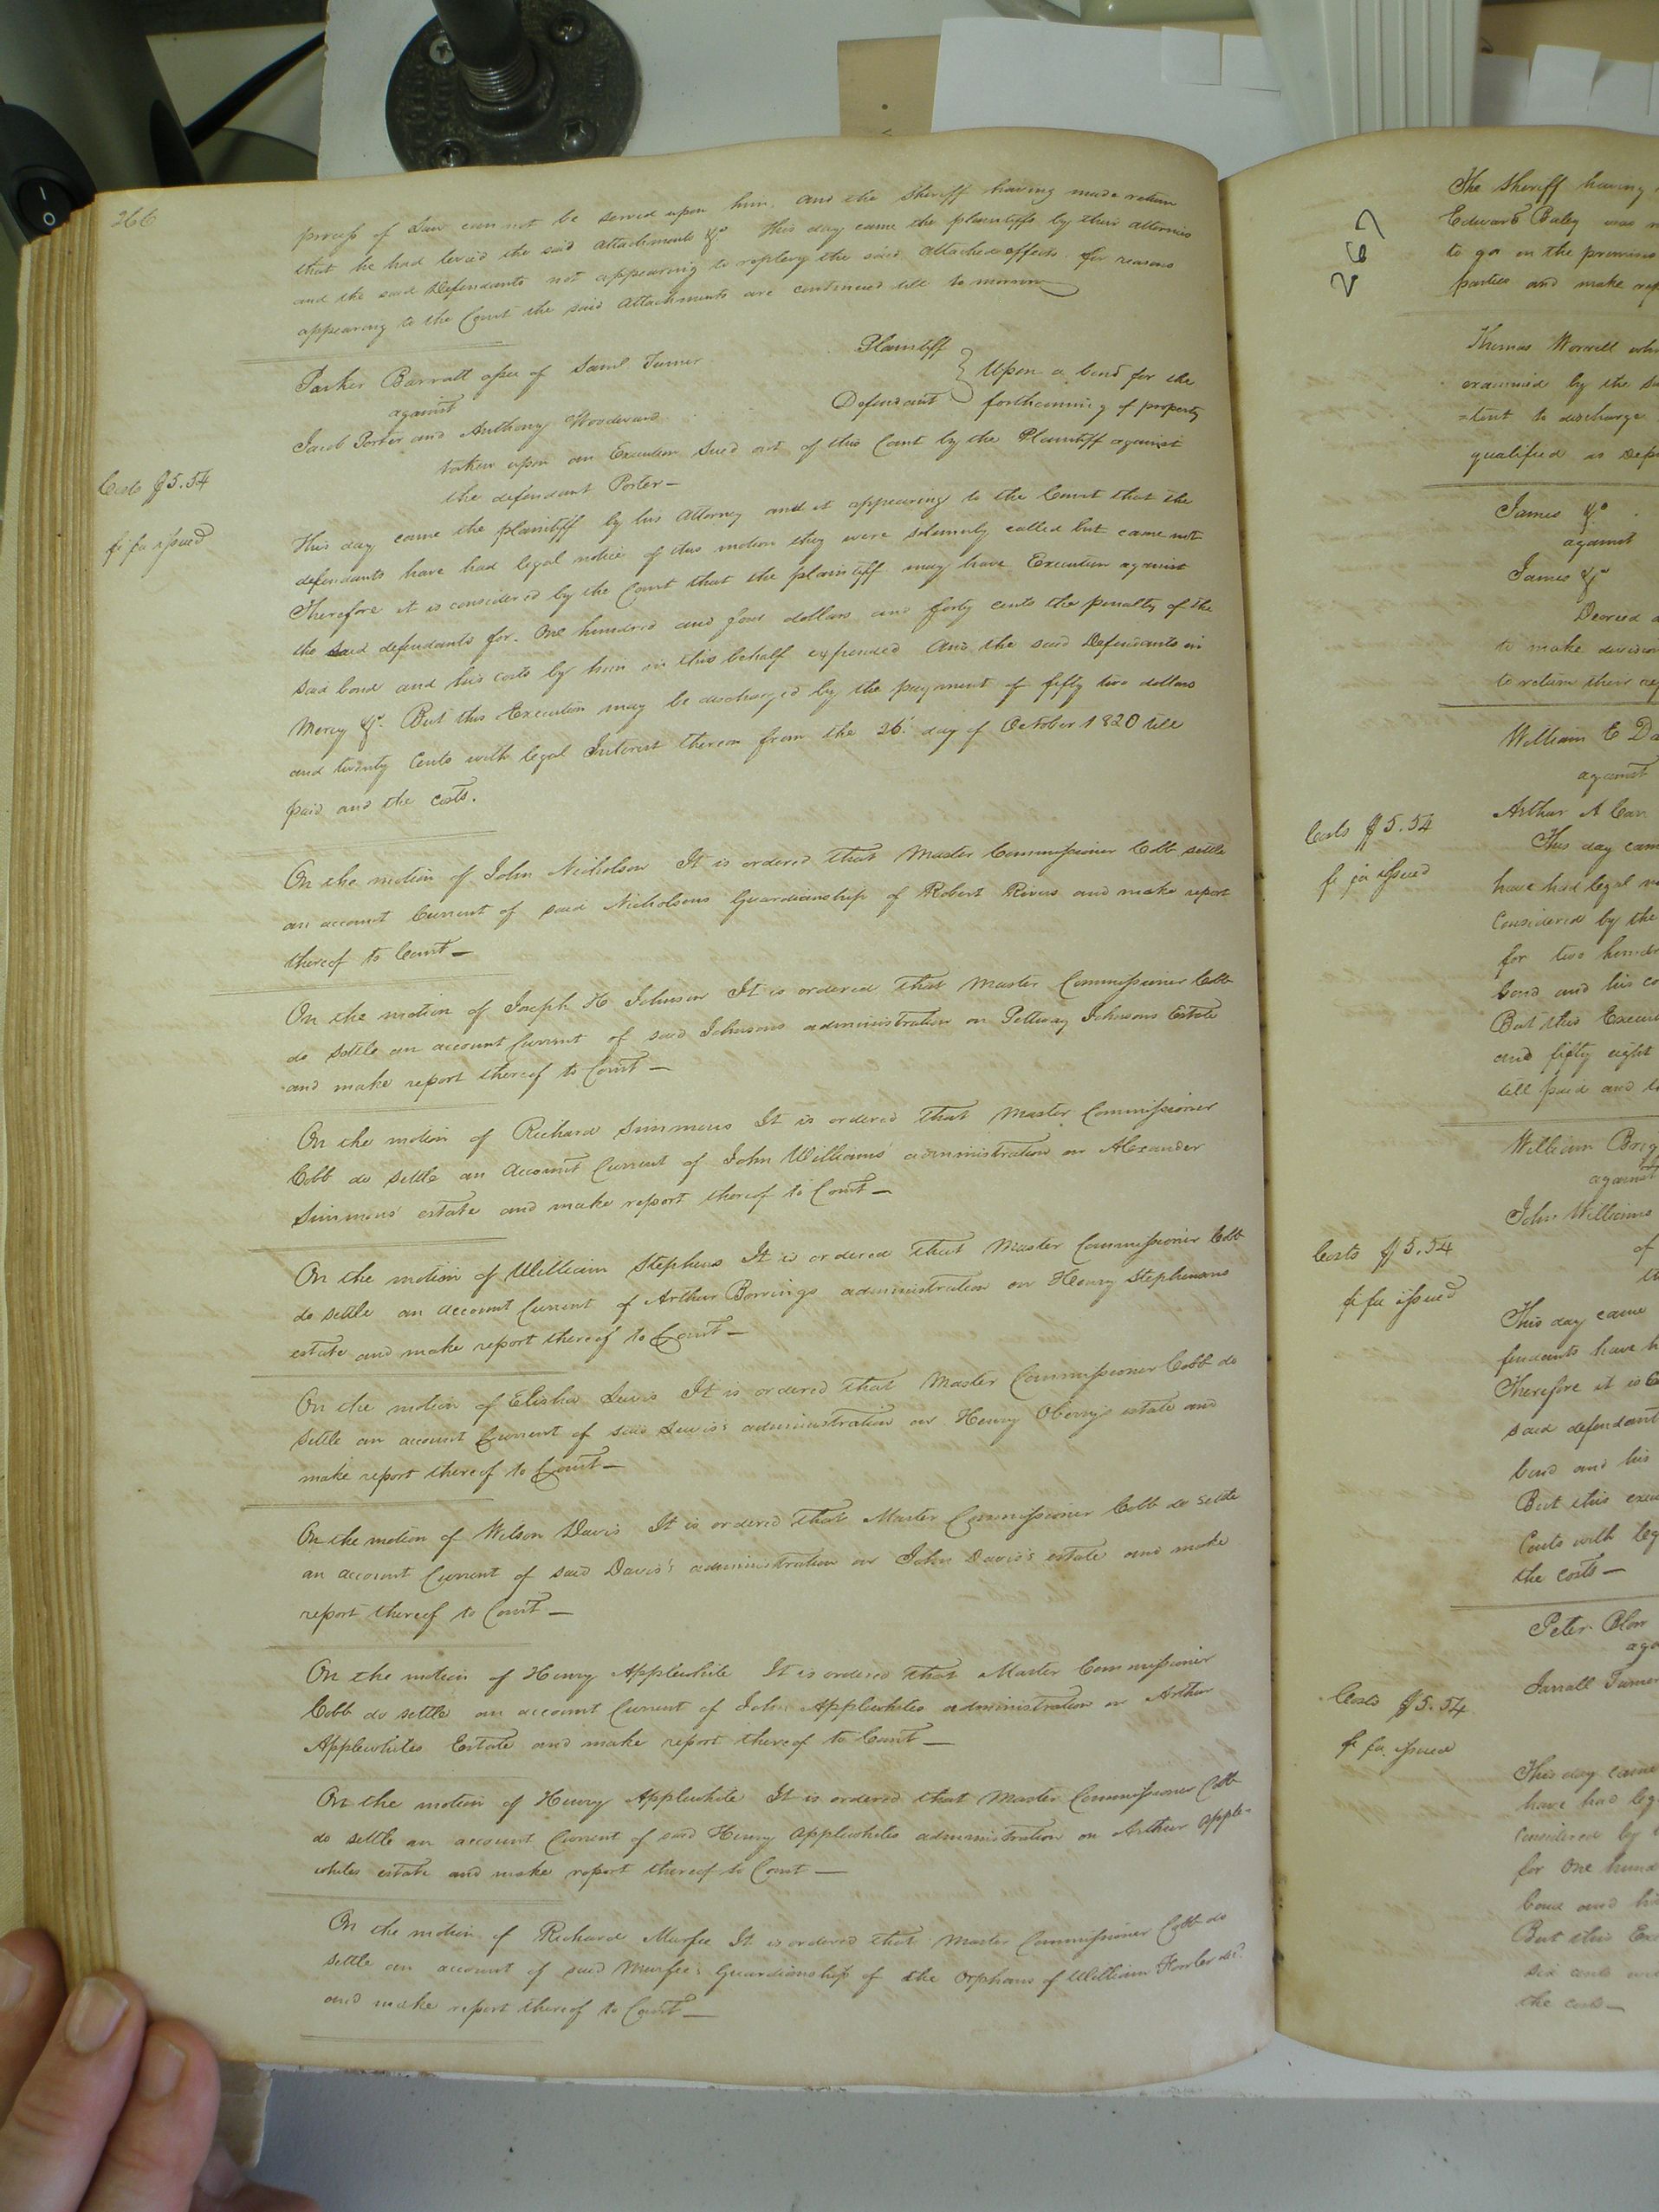 266
process of Law can not be served upon him. and the Sheriff having made return
that he had levied the said attachments &c. This day came the plaintiffs by their attornies
and the said Defendants not appearing to replevy the said attached effects. for reasons
appearing to the Court the said Attachments are continued till to morrow
Parker Barratt assee of Saml Turner Plaintiff
against
Jacob Porter and Anthony Woodward Defendant
Upon a bond for the
forthcoming of property
taken upon an Execution sued out of this Court by the Plaintiff against
the defendant Porter —
Costs $5.54
fi fa issued
This day came the plaintiff by his Attorney and it appearing to the Court that the
defendants have had legal notice of this motion they were solemnly called but came not
Therefore it is considered by the Court that the plaintiff may have Execution against
the said defendants for. One hundred and four dollars and forty cents the penalty of the
said bond and his costs by him in this behalf expended And the said Defendants in
Mercy &c. But this Execution may be discharged by the payment of fifty two dollars
and twenty Cents with legal Interest thereon from the 26. day of October 1820 till
paid and the costs.
On the motion of John Nicholson It is ordered that Master Commissioner Cobb settle
an account Current of said Nicholsons Guardianship of Robert Rivers and make report
thereof to Court —
On the motion of Joseph H Johnson It is ordered that Master Commissioner Cobb
do settle an account Current of said Johnsons administration on Pettway Johnsons Estate
and make report thereof to Court —
On the motion of Richard Simmons It is ordered that Master Commissioner
Cobb do settle an Account Current of John Williams' administration on Alexander
Simmons' estate and make report thereof to Court —
On the motion of William Stephens It is ordered that Master Commissioner Cobb
do settle an account Current of Arthur administration on Henry Stephensons
estate and make report thereof to Court —
On the motion of Elisha Lewis It is ordered that Master Commissioner Cobb do
settle an account Current of said Lewis's administration on Henry Oberrys estate and
make report thereof to Court —
On the motion of Wilson Davis It is ordered that Master Commissioner Cobb do settle
an account Current of said Davis's administration on John Davis's estate and make
report thereof to Court —
On the motion of Henry Applewhite It is ordered that Master Commissioner
Cobb do settle an account Current of John Applewhites administration on Arthur
Applewhites Estate and make report thereof to Court —
On the motion of Henry Applewhite It is ordered that Master Commissioner Cobb
do settle an account Current of said Henry Applewhites administration on Arthur Apple-
whites estate and make report thereof to Court —
On the motion of Richard Murfee It is ordered that Master Commissioner Cobb do
settle an account of said Murfee's Guardianship of the Orphans of William Fowler decd.
and make report thereof to Court —
267
The Sheriff having
Edward Baley was
to go on the premises
parties and make
Thomas Worrell
examined by the
=tent to discharge
qualified as
James &c.
against
James &c
Decred
to make division
to return their
William E
against
Arthur A
Costs $5.54
fi fa issued
This day
have had legal
Considered by the
for two
bond and his
But this
and fifty eight
till paid and
William
against
John Williams
of
Costs $5.54
fi fa issued
This day came
fendants have
Therefore it is
said defendant
bond and his
But this
Cents with
the costs —
Peter Blow
Jarrall
Costs $5.54
fi fa. issued
This day came
have had
Considered by
for One
bond and
But this
six cents
the costs —